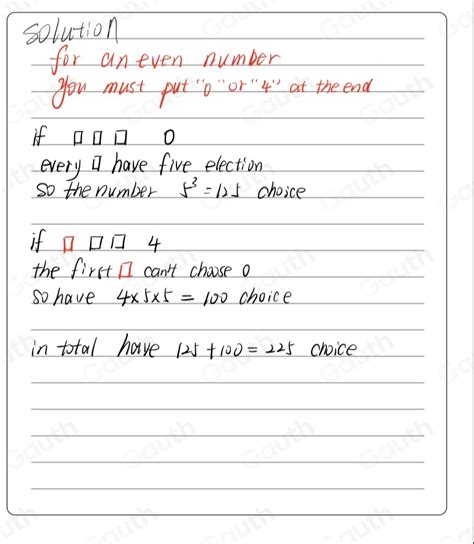 solution
for an even number
you must put "0" or "4" at the end
if □ □ □ 0
every □ have five election
so the number 5³ = 125 choice
if □ □ □ 4
the first □ can't choose 0
so have 4x5x5 = 100 choice
in total have 125 + 100 = 225 choice